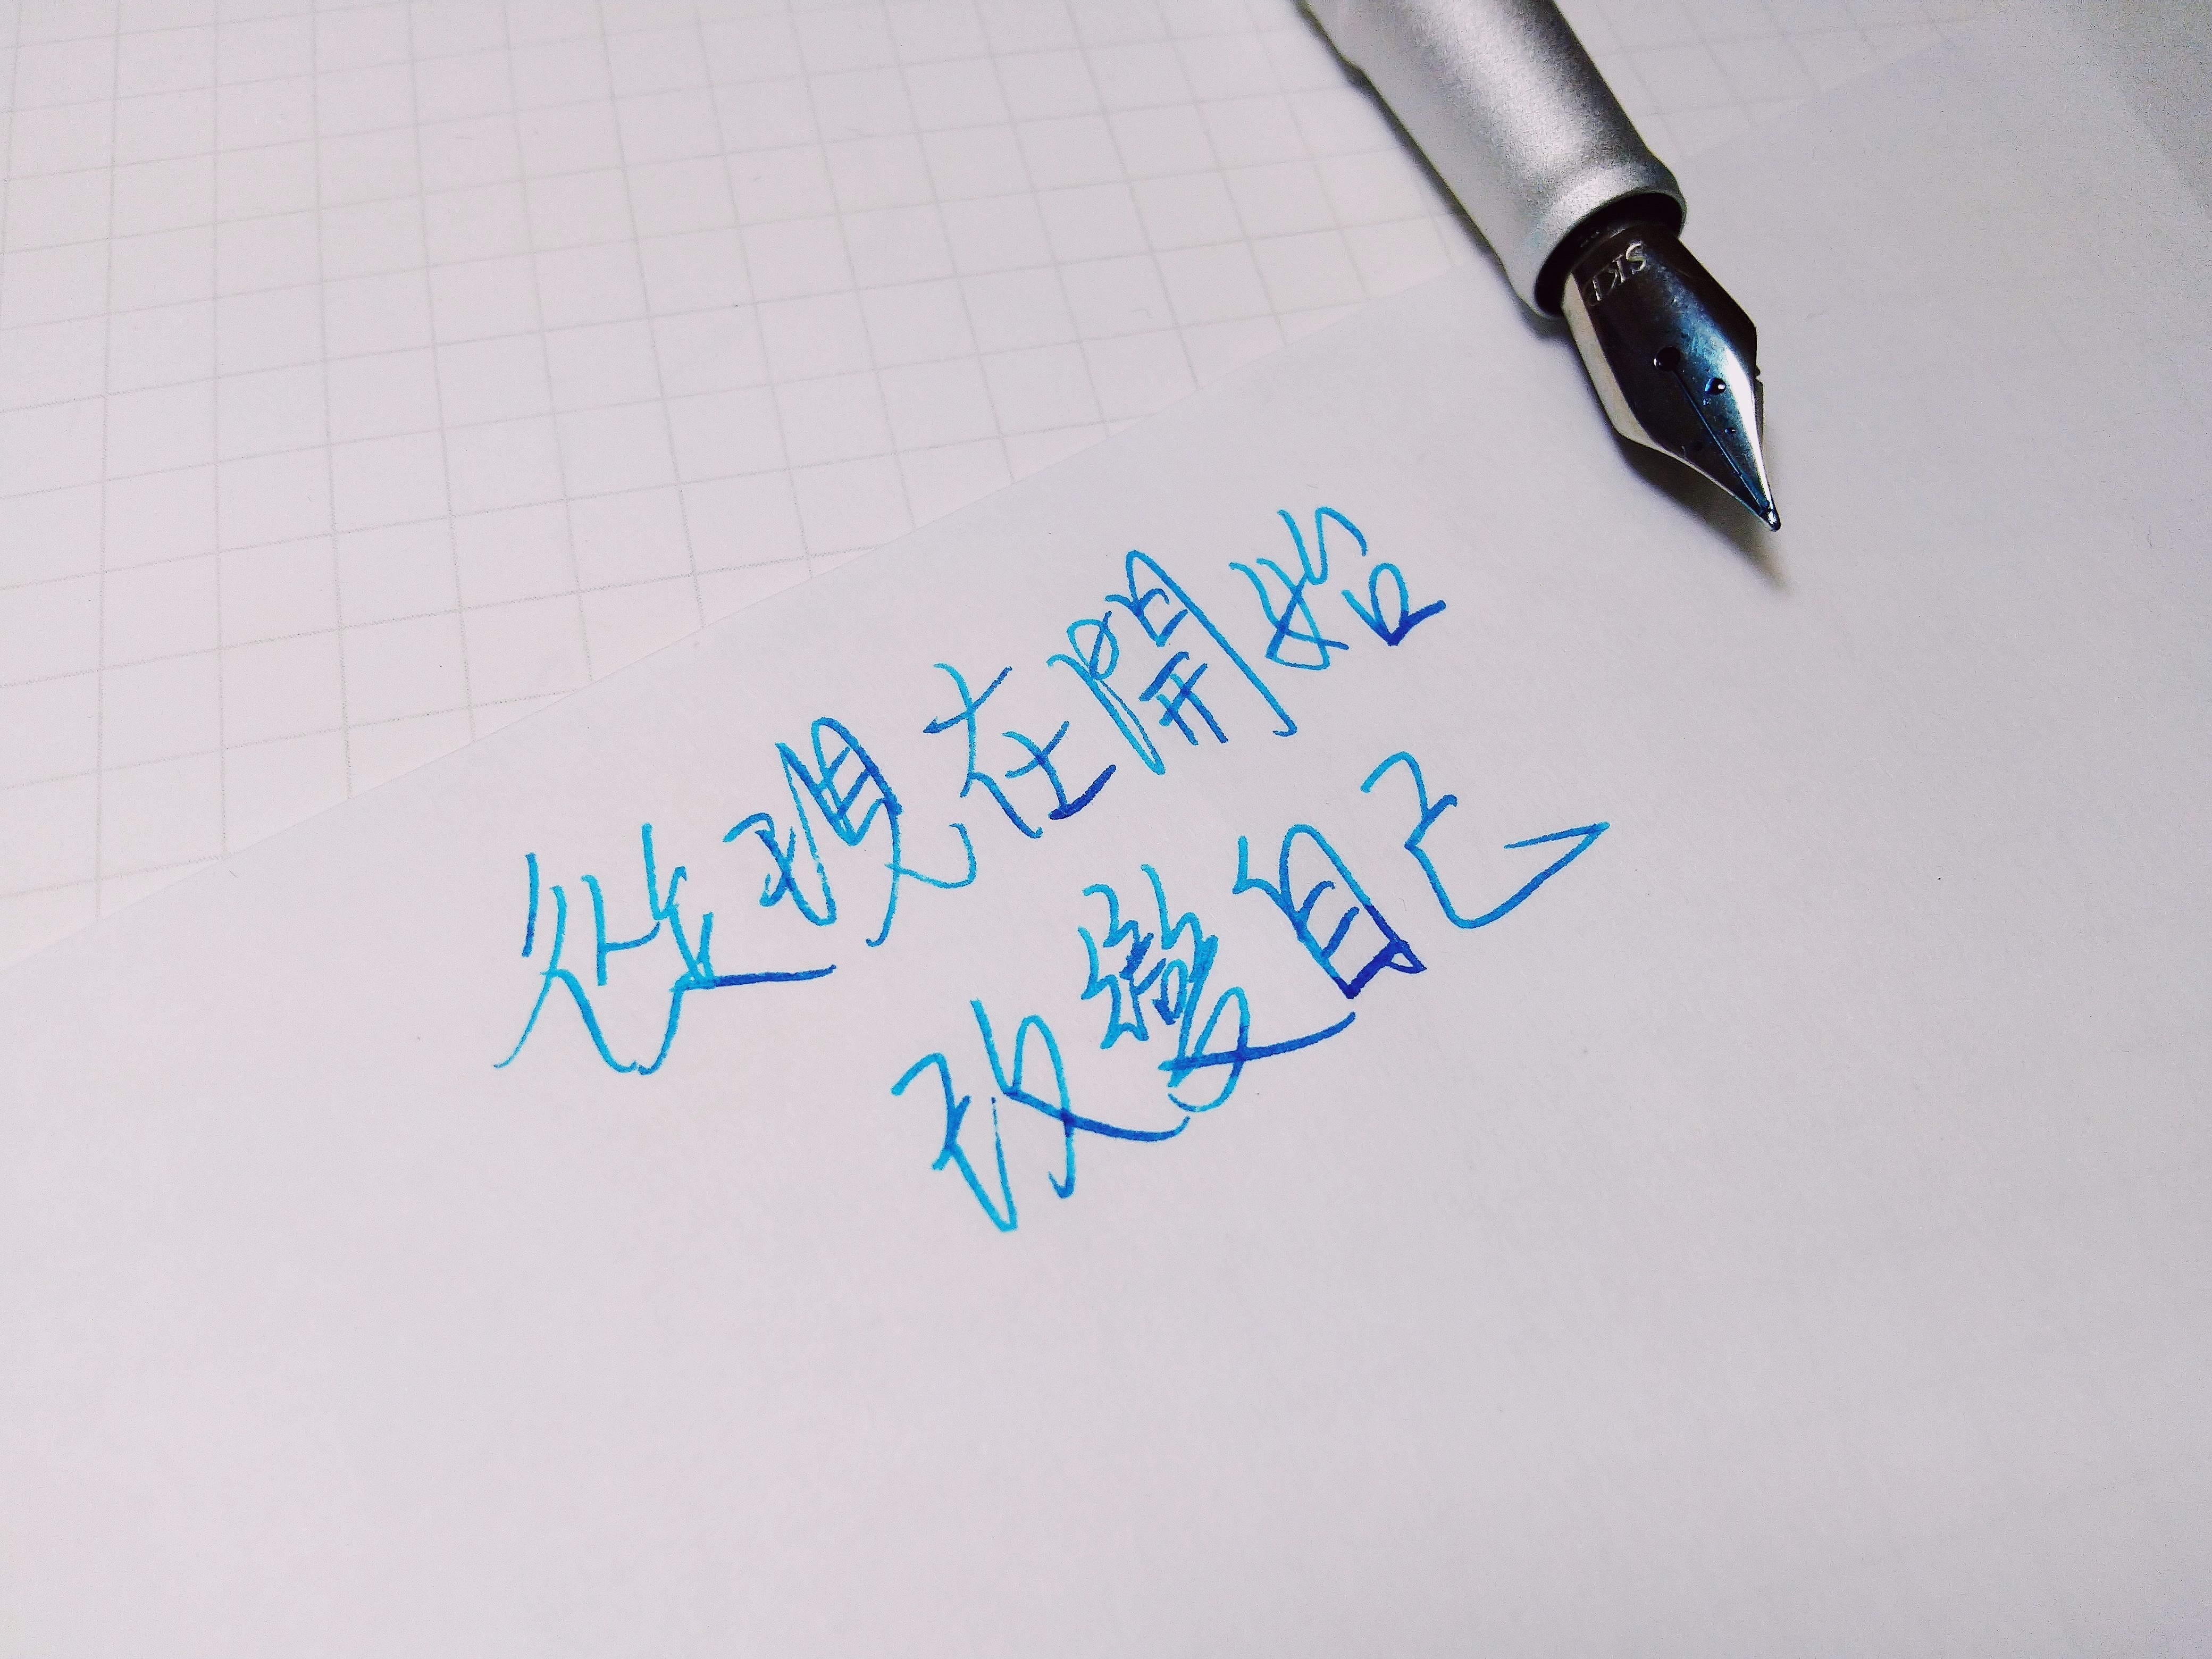 SKP
從現在開始
改變自己